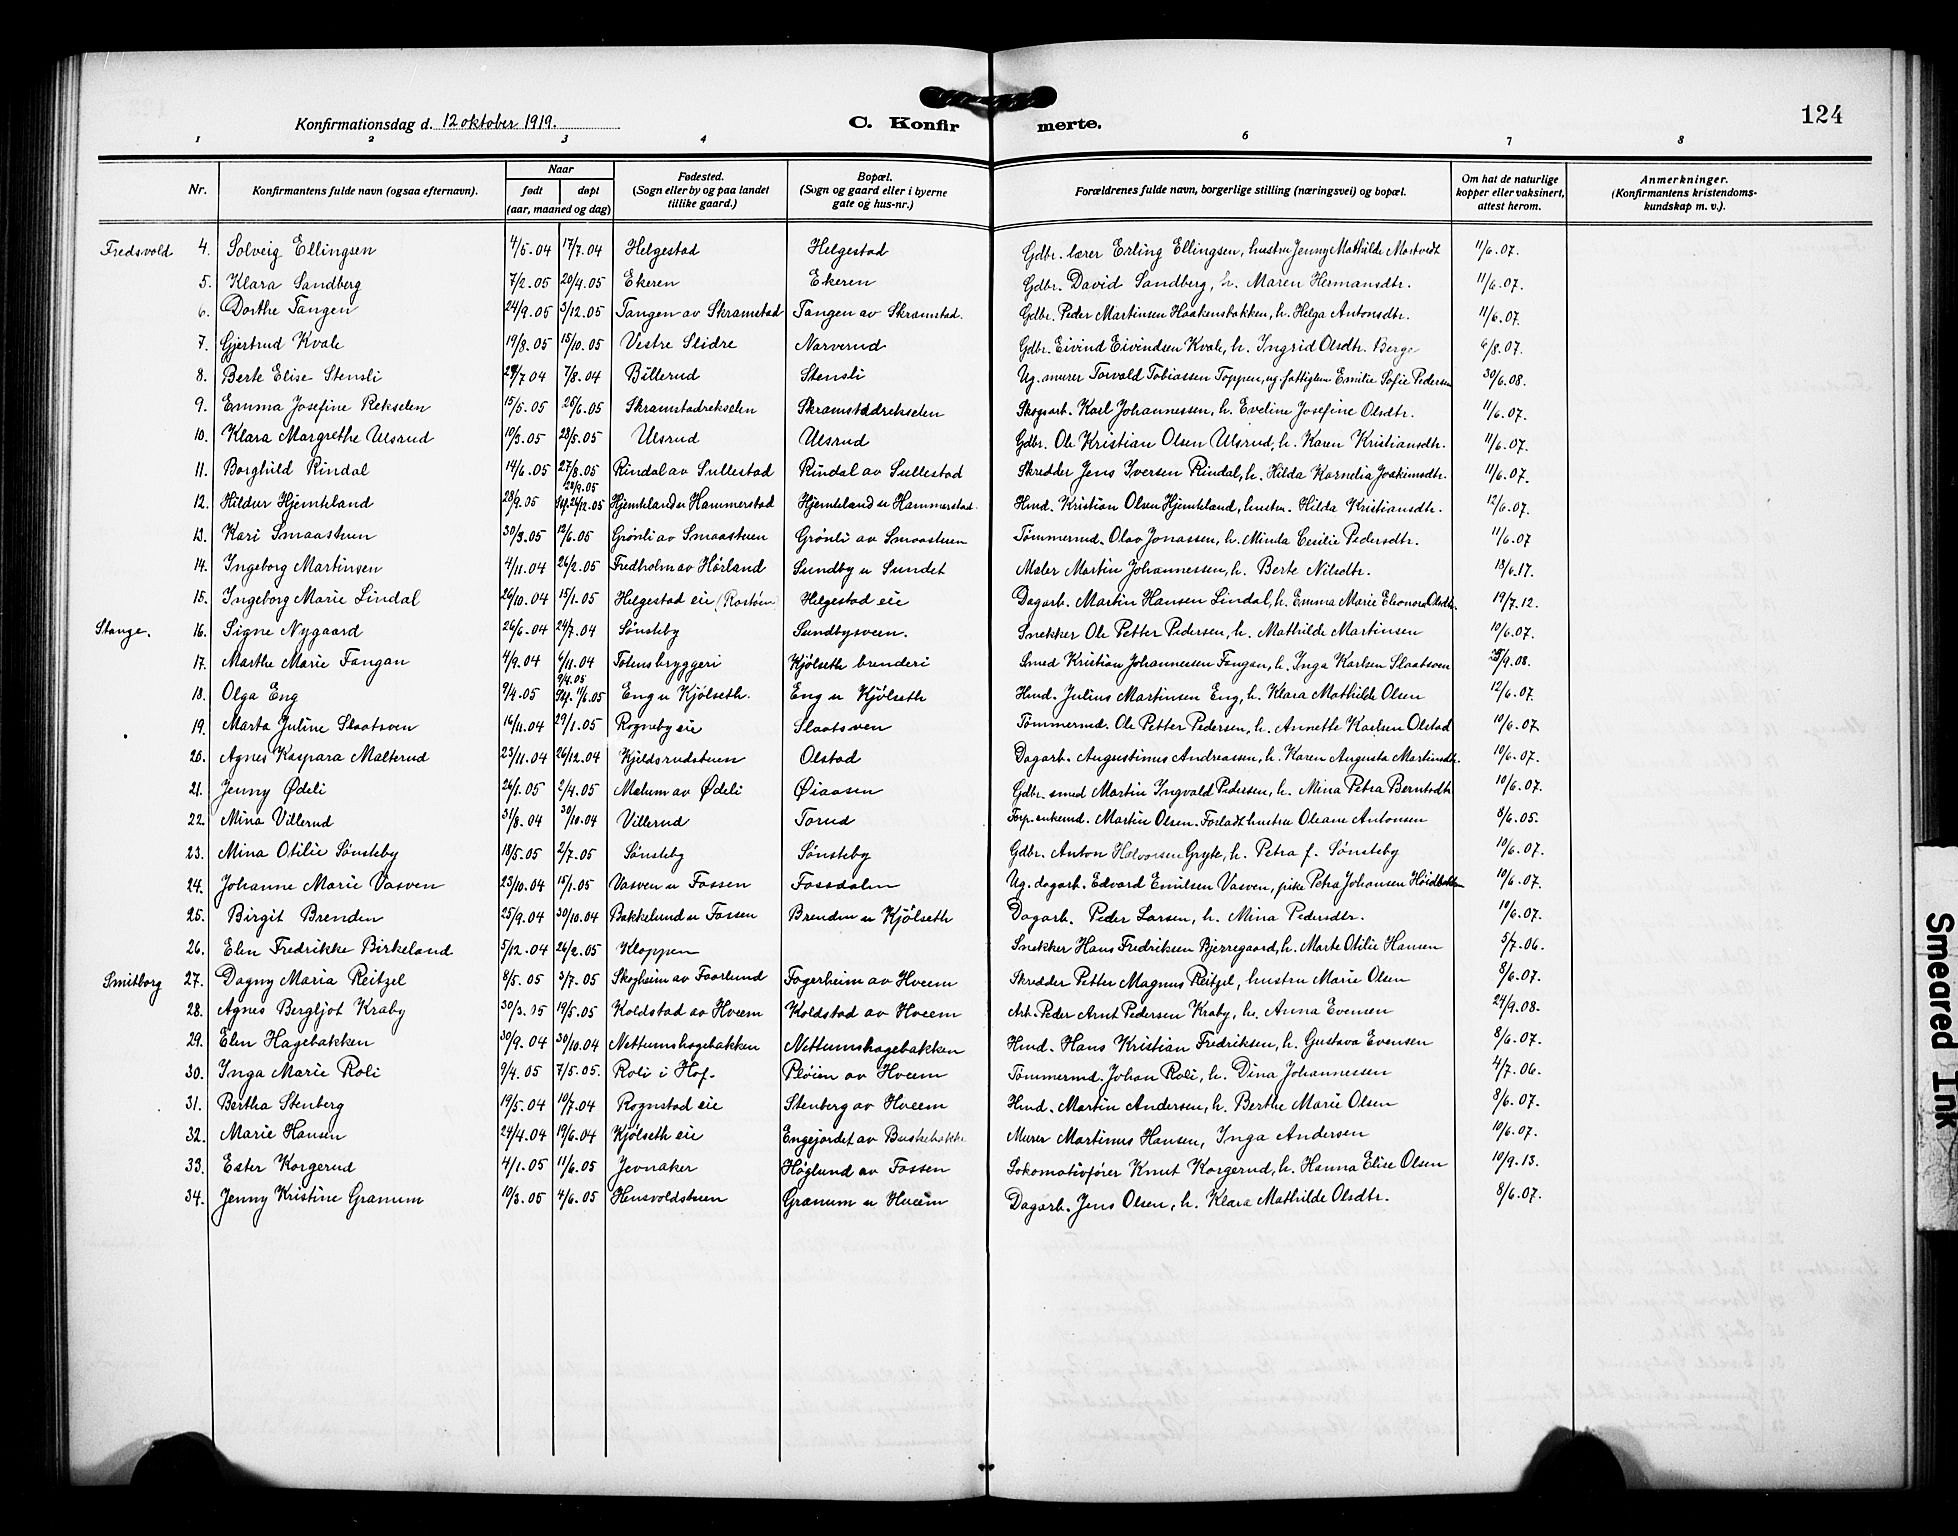 Konfirmationsdag d. 12 oktober 1919. C. Konfirmerte. 124
1 2 3 4 6 7 8
Nr. Konfirmantens fulde navn (ogsaa efternavn). Naar født døpt (aar, maaned og dag) Fødested. (Sogn eller by og paa landet tillike gaard.) Bopæl. (Sogn og gaard eller i byerne gate og hus-nr.) Forældrenes fulde navn, borgerlige stilling (næringsvei) og bopæl. Om hat de naturlige kopper eller vaksinert, attest herom. Anmerkninger. (Konfirmantens kristendomskundskap m. v.).
Fredsvold 4. Solveig Ellingsen 4/5.04 17/7.04 Helgestad Helgestad Gdbr. lærer Erling Ellingsen, hustru Jenny Mathilde Mortvedt 11/6.07.
5. Klara Sandberg 7/2.05 20/4.05 Ekeren Ekeren Gdbr. David Sandberg, h. Maren Hermansdtr. 11/6.07.
6. Dorthe Tangen 24/9.05 3/12.05 Tangen av Skramstad Tangen av Skramstad. Gdbr. Peder Martinsen Haakensbakken, h. Helga Antonsdtr. 11/6.07.
7. Gjertrud Kvale 19/8.05 15/10.05 Vestre Slidre Narverud Gdbr. Eivind Eivindsen Kvale, h. Ingrid Olsdtr. Berge 6/8.07.
8. Berte Elise Stensli 29/7 04 7/8.04 Billerud Stensli Ug. murer Torvald Tobiassen Toppen, ug. fattiglem Emilie Sofie Pedersen 30/6.08.
9. Emma Josefine Rekselen 15/5.05 25/6.05 Skramstadrekselen Skramstadrekselen Skogsarb. Karl Johannessen, h. Eveline Josefine Olsdtr. 11/6.07.
10. Klara Margrethe Ulsrud 10/3.05 28/5.05 Ulsrud Ulsrud Gdbr. Ole Kristian Olsen Ulsrud, h. Karen Kristiansdtr. 11/6.07.
11. Borghild Rindal 14/6.05 27/8.05 Rindal av Sullestad Rindal av Sullestad Skredder Jens Iversen Rindal, h. Hilda Kornelia Joakimsdtr. 11/6.07.
12. Hildur Hjemteland 28/9.05 28/9.05 26/12.05 Hjemteland u Hammerstad Hjemteland u Hammerstad. Hmd. Kristian Olsen Hjemteland, hustru Hilda Kristiansdtr. 12/6.07.
13. Kari Smaastuen 30/3.05 12/6.05 Grönli av Smaastuen Grönli av Smaastuen Tömmermd. Olav Jonassen, h. Minda Cecilie Pedersdtr. 11/6.07
14. Ingeborg Martinsen 4/11.04 26/2.05 Fredholm av Hörland Sundby u Sundet Maler Martin Johannessen, h. Berte Nilsdtr. 13/6.17.
15. Ingeborg Marie Lindal 26/10.04 15/1.05 Helgestad eie Helgestad eie Dagarb. Martin Hansen Lindal, h. Emma Marie Eleonora Olsdtr. 19/7.12.
Stange. 16. Signe Nygaard 26/6.04 24/7.04 Sönsteby Sundbysveen. Snekker Ole Petter Pedersen, h. Mathilde Martinsen 10/6.07.
17. Marthe Marie Fangan 4/9.04 6/11.04 Totensbryggeri Kjölseth brenderi Smed Kristian Johannessen Fangan, h. Inga Karlsen Slaatsven /9.08.
18. Olga Eng 9/4.05 9/4.05 11/6.05 Eng u Kjölseth. Eng u Kjölseth Hmd. Julius Martinsen Eng, h. Klara Mathilde Olsen 12/6.07.
19. Marta Juline Slaatsven 16/11.04 29/1.05 Rogneby eie Slaatsven Tömmermd. Ole Petter Pedersen, h. Annette Karlsen Olstad 10/6.07.
20. Agnes Kaspara Malterud 23/11.04 26/12.04 Kjeldsrudstuen Olstad Dagarb. Augustinus Andreassen, h. Karen Augusta Martinsdtr. 10/6.07.
21. Jenny Ødeli 26/1.05 2/4.05 Malum av Ødeli Øiaasen Gdbr. smed Martin Ingvald Pedersen, h. Mina Petra Berntsdtr 10/6.07.
22. Mina Villerud 31/8.04 30/10.04 Villerud Torud Forp. enkemd. Martin Olsen. Forladt hustru Oleane Antonsen 8/6.05.
23. Mina Otilie Sönsteby 18/5.05 2/7.05 Sönsteby Sönsteby Gdbr. Anton Halvorsen Gryte, h. Petra f. Sönsteby 10/6.07.
24. Johanne Marie Vasven 23/10.04 15/1.05 Vasven u Fossen Fossdalen Ug. dagarb. Edvard Emilsen Vasven, pike Petra Johansen Höidbakken 10/6.07.
25. Birgit Brenden 25/9.04 30/10.04 Bakkelund u Fossen Brenden u Kjölseth Dagarb. Peder Larsen, h. Mina Pedersdtr. 10/6.07.
26. Elen Fredrikke Birkeland 5/12.04 26/2.05 Kloppen Snekker Hans Fredriksen Bjerregaard, h. Marte Otilie Hansen 5/7.06.
Smitborg 27. Dagny Maria Reitzel 8/5.05 3/7.05 Skogheim av Faarlund Fagerheim av Hveem Skredder Petter Magnus Reitzel, hustru Marie Olsen 8/6.07.
28. Agnes Bergljot Kraby 30/3.05 19/5.05 Koldstad av Hveem Koldstad av Hveem Arb. Peder Arnt Pedersen Kraby, h. Anna Evensen 24/9.08.
29. Elen Hagebakken 30/9.04 30/10.04 Nettumshagebakken Nettumshagebakken Hmd. Hans Kristian Fredriksen, h. Gustava Evensen 8/6.07.
30. Inga Marie Roli 9/4.05 7/5.05. Roli i Hof. Plöien av Hveem Tömmermd. Johan Roli, h. Dina Johannessen 4/7.06.
31. Bertha Stenberg 19/5.04 10/7.04 Rognstad eie Stenberg av Hveem Hmd. Martin Andersen, h. Berthe Marie Olsen 8/6.07.
32. Marie Hansen 24/4.04 19/6.04 Kjölseth eie Engejordet av Buskebakke Murer Martinus Hansen, Inga Andersen 10/6.07.
33. Ester Korgerud 4/1.05 11/6.05 Jevnaker Höglund av Fossen Lokomotivförer Knut Korgerud, h. Hanna Elise Olsen 10/9.13.
34. Jenny Kristine Granum 10/3.05 4/6.05 Hensvoldstuen Granum u Hveem Dagarb. Jens Olsen, h. Klara Mathilde Olsdtr. 8/6.07.
Smeared Ink